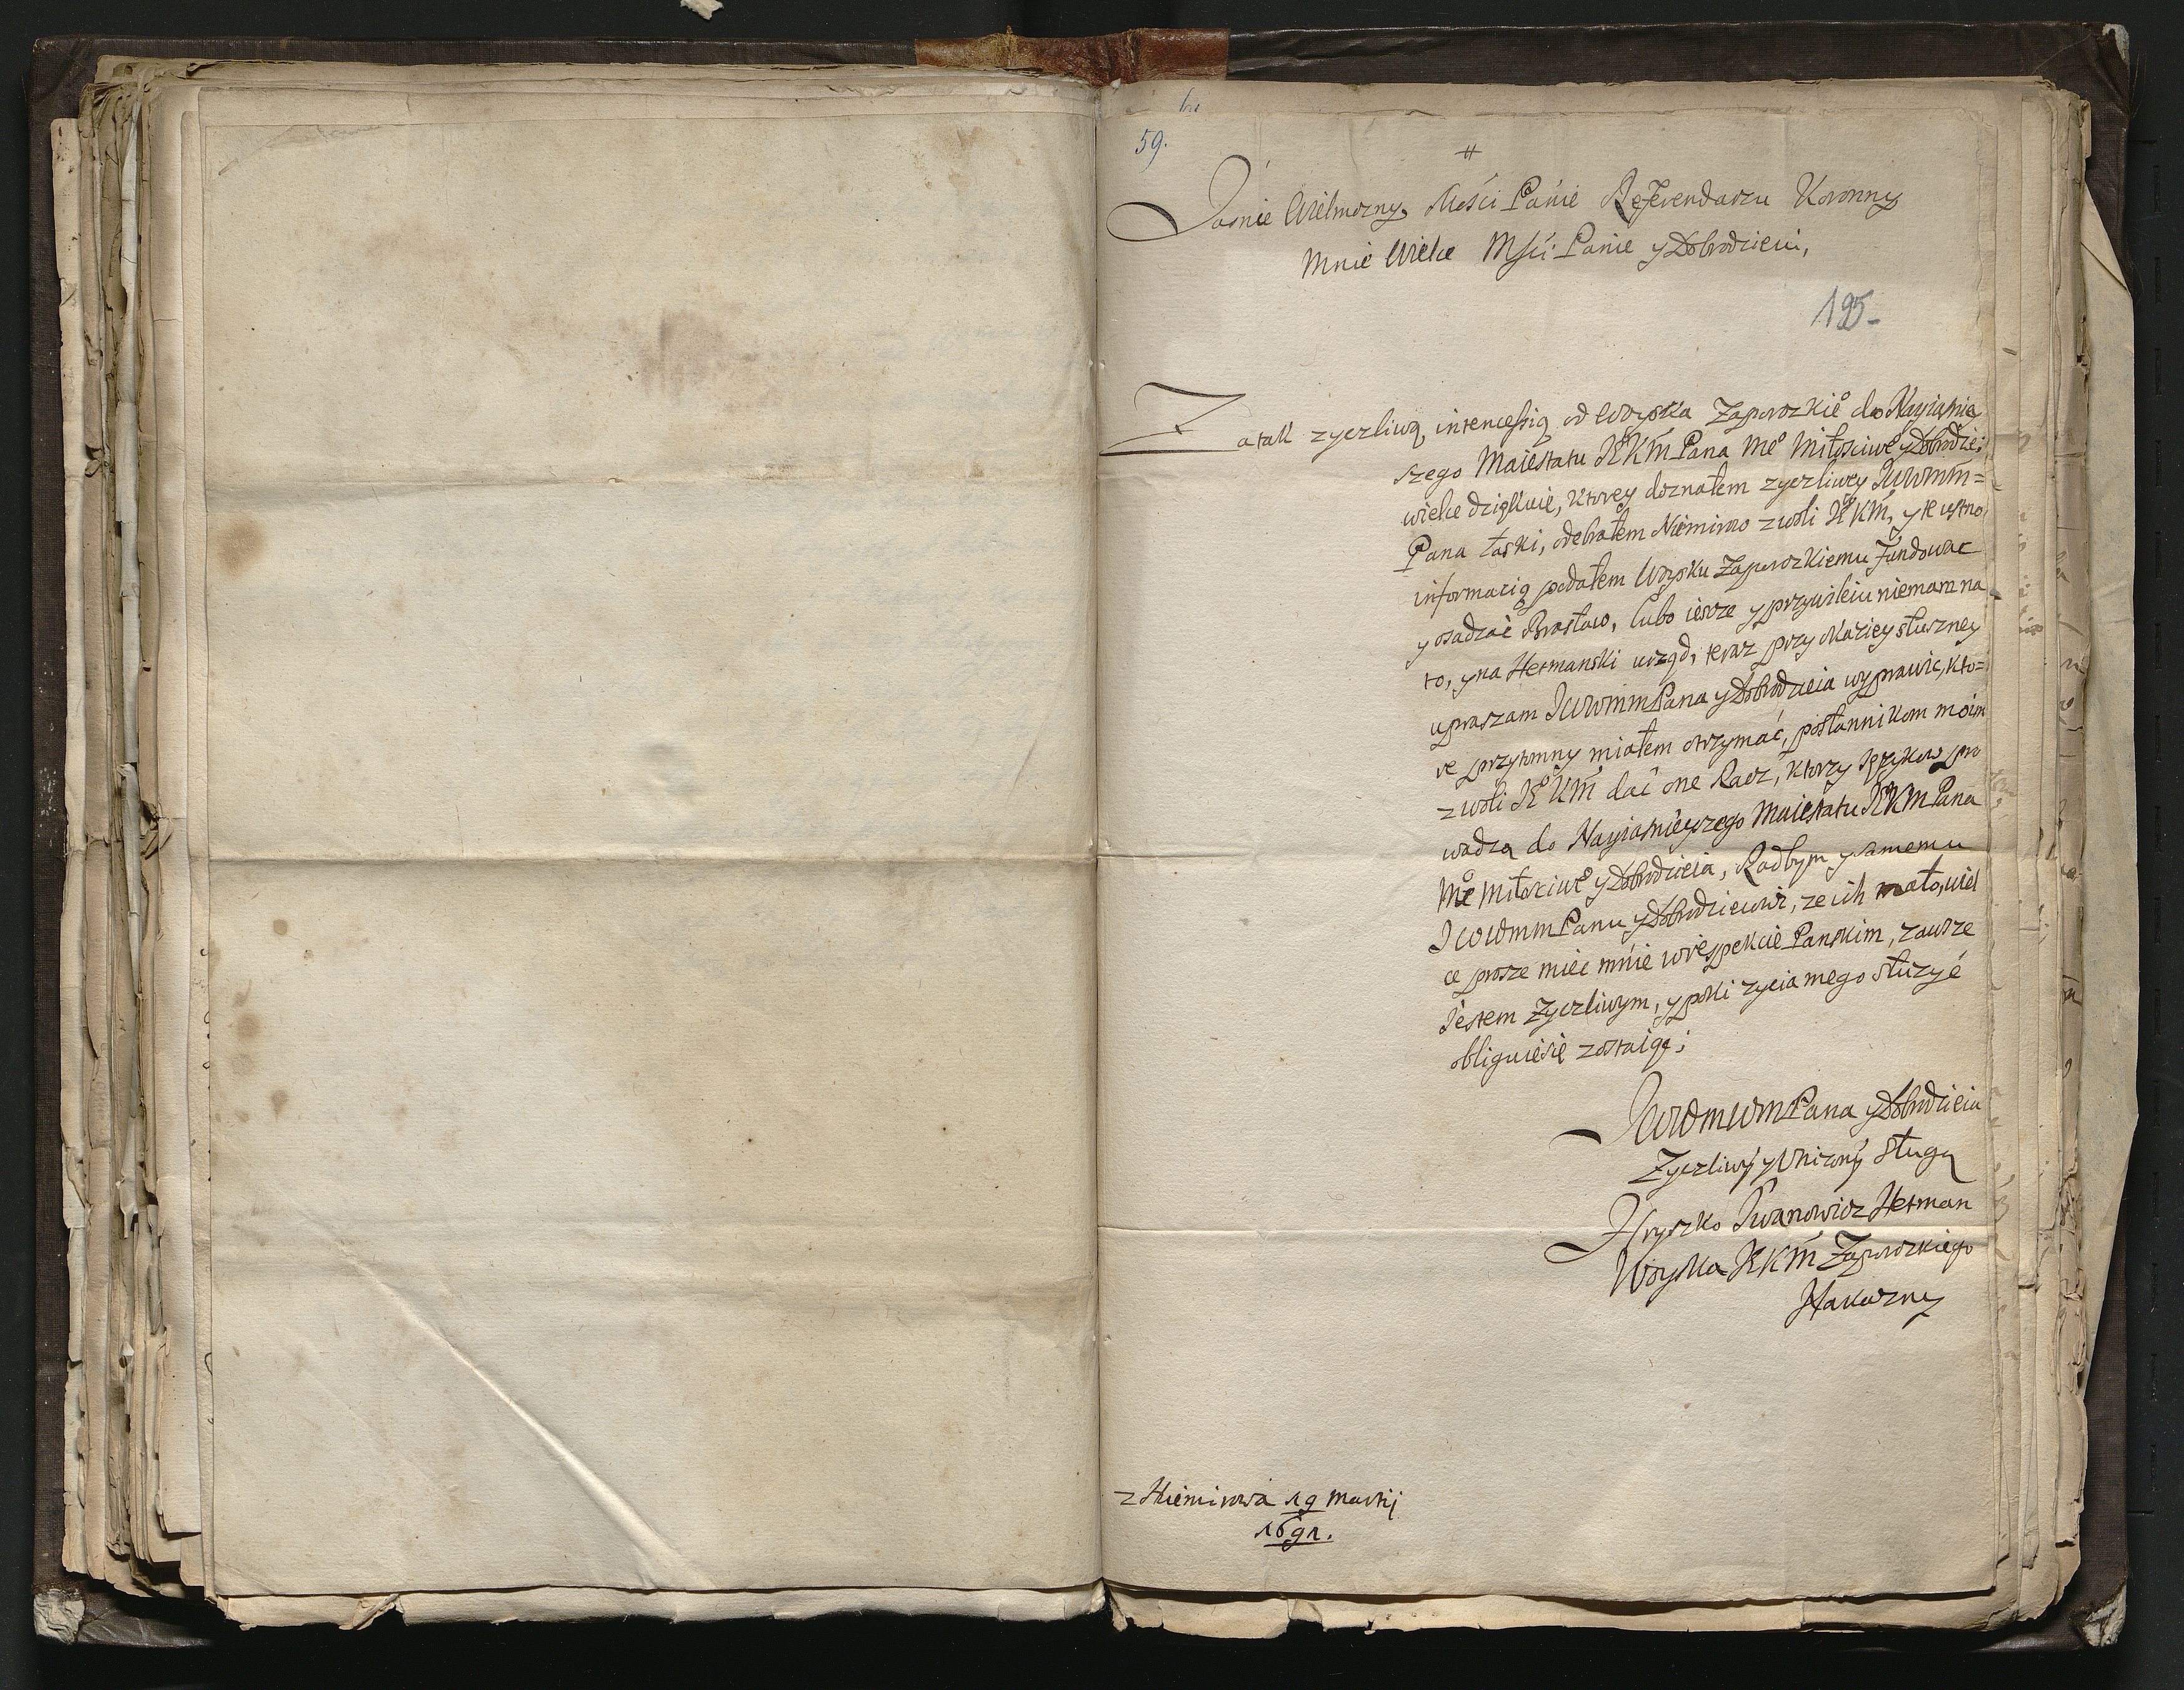 59.
Jasnie Wielmozny Mości Panie Referendarzu Koronny
Mnie Wielce Mści Panie y Dobrodzieiu,
195-
Za tak zyczliwą intencessią od Woyska Zaporozkie° do Nayiasnie
szego Maiestatu JKM Pana Me° Miłosciwe° y Dobrodzie:
wielce dziękuię, ktorey doznałem zyczliwey JWWMM=
Pana łaski, odebrałem Niemirow z woli J°KM, y te ustno
informacią podałem Woysku Zaporozkiemu Fundowac
y osadzać Brasław, lubo iescze y przywileiu niemam na
to, y na Hetmanski urząd, teraz przy okaziey słuszney
upraszam JWWMMPana y Dobrodzieia wyprawic, kto=
re przytomny miałem otrzymać, posłannikom moim
z woli J°KM dać one Racz, ktorzy Językow pro
wadzą do Nayiasnieyszego Maiestatu JKM Pana
Me° Miłosciwe° y Dobrodzieia, Radbym y samemu
JWWMMPanu y Dobrodzieiowi, ze ich mało, wiel
ce prosze miec mnie w respekcie Panskim, zawsze
Jestem Zyczliwym, y poki zycia mego słuzyć
obliguiesię zostaiąc;
JWWMWMPana y Dobrodzieia
Zyczliwy y Unizony Sługa
Hryszko Iwanowicz Hetman
Woyska JKM Zaporozkiego
Nakazny
z Niemirowa 19 Martij
1691.